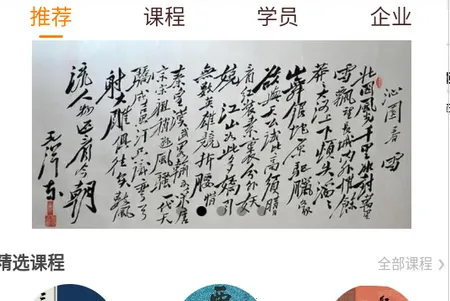 推荐 课程 学员 企业
沁园春 雪
北国风光千里冰封万里
雪飘望长城内外惟余
莽莽大河上下顿失滔滔
山舞银蛇原驰蜡象
欲与天公试比高须晴日
看红装素裹分外妖
娆江山如此多娇引
无数英雄竞折腰惜
秦皇汉武略输文采唐
宗宋祖稍逊风骚一代天
骄成吉思汗只识弯弓
射大雕俱往矣数风
流人物还看今朝
毛泽东
精选课程
全部课程 >